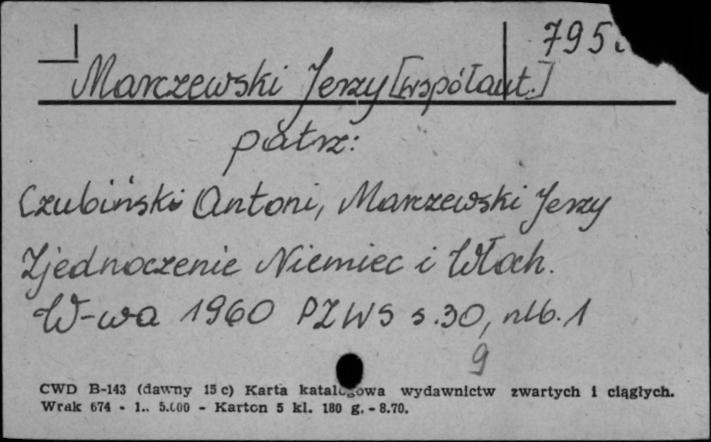 795
Marczewski Jerzy [współaut.]
patrz:
Czubiński Antoni, Marczewski Jerzy
Zjednoczenie Niemiec i Włoch.
W-wa 1960 PZWS s.30, nlb.1
9
CWD B-143 (dawny 15 c) Karta katalogowa wydawnictw zwartych i ciągłych.
Wrak 674 - 1.. 5.000 - Karton 5 kl. 180 g. - 8.70.